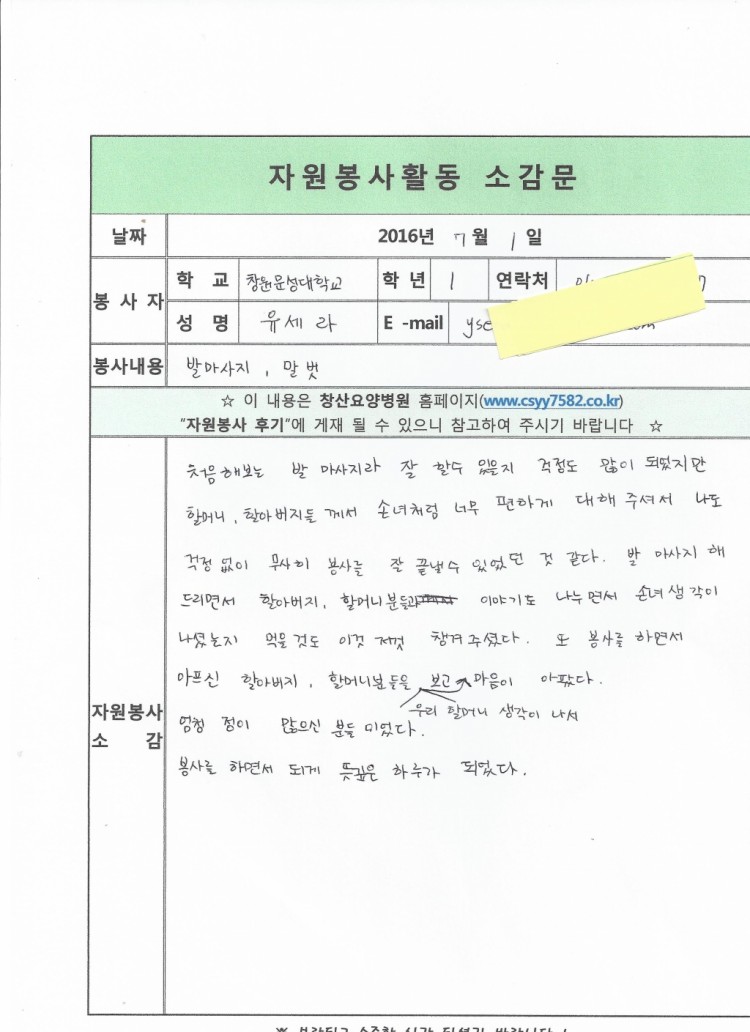 자원봉사활동 소감문
날짜 2016년 7월 1일
봉사자 학 교 창원문성대학교 학 년 1 연락처
성 명 유세라 E -mail yse
봉사내용 발마사지, 말벗
☆ 이 내용은 창산요양병원 홈페이지(www.csyy7582.co.kr)
"자원봉사 후기"에 게재 될 수 있으니 참고하여 주시기 바랍니다 ☆
자원봉사 소 감
처음해보는 발 마사지라 잘 할수 있을지 걱정도 많이 되었지만
할머니, 할아버지들 께서 손녀처럼 너무 편하게 대해 주셔서 나도
걱정 없이 무사히 봉사를 잘 끝낼수 있었던 것 같다. 발 마사지 해
드리면서 할아버지, 할머니분들과 이야기도 나누면서 손녀생각이
나셨는지 먹을것도 이것 저것 챙겨주셨다. 또 봉사를 하면서
아프신 할아버지, 할머니분들을 보고 우리 할머니 생각이 나서 마음이 아팠다.
엄청 정이 많으신 분들 이었다.
봉사를 하면서 되게 뜻깊은 하루가 되었다.